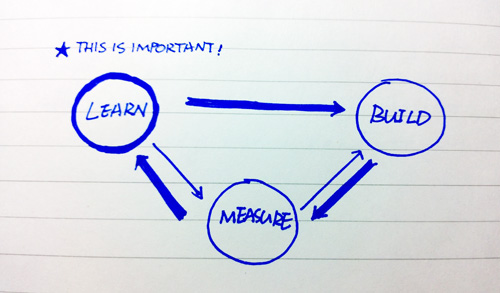 ★ THIS IS IMPORTANT!
LEARN
BUILD
MEASURE